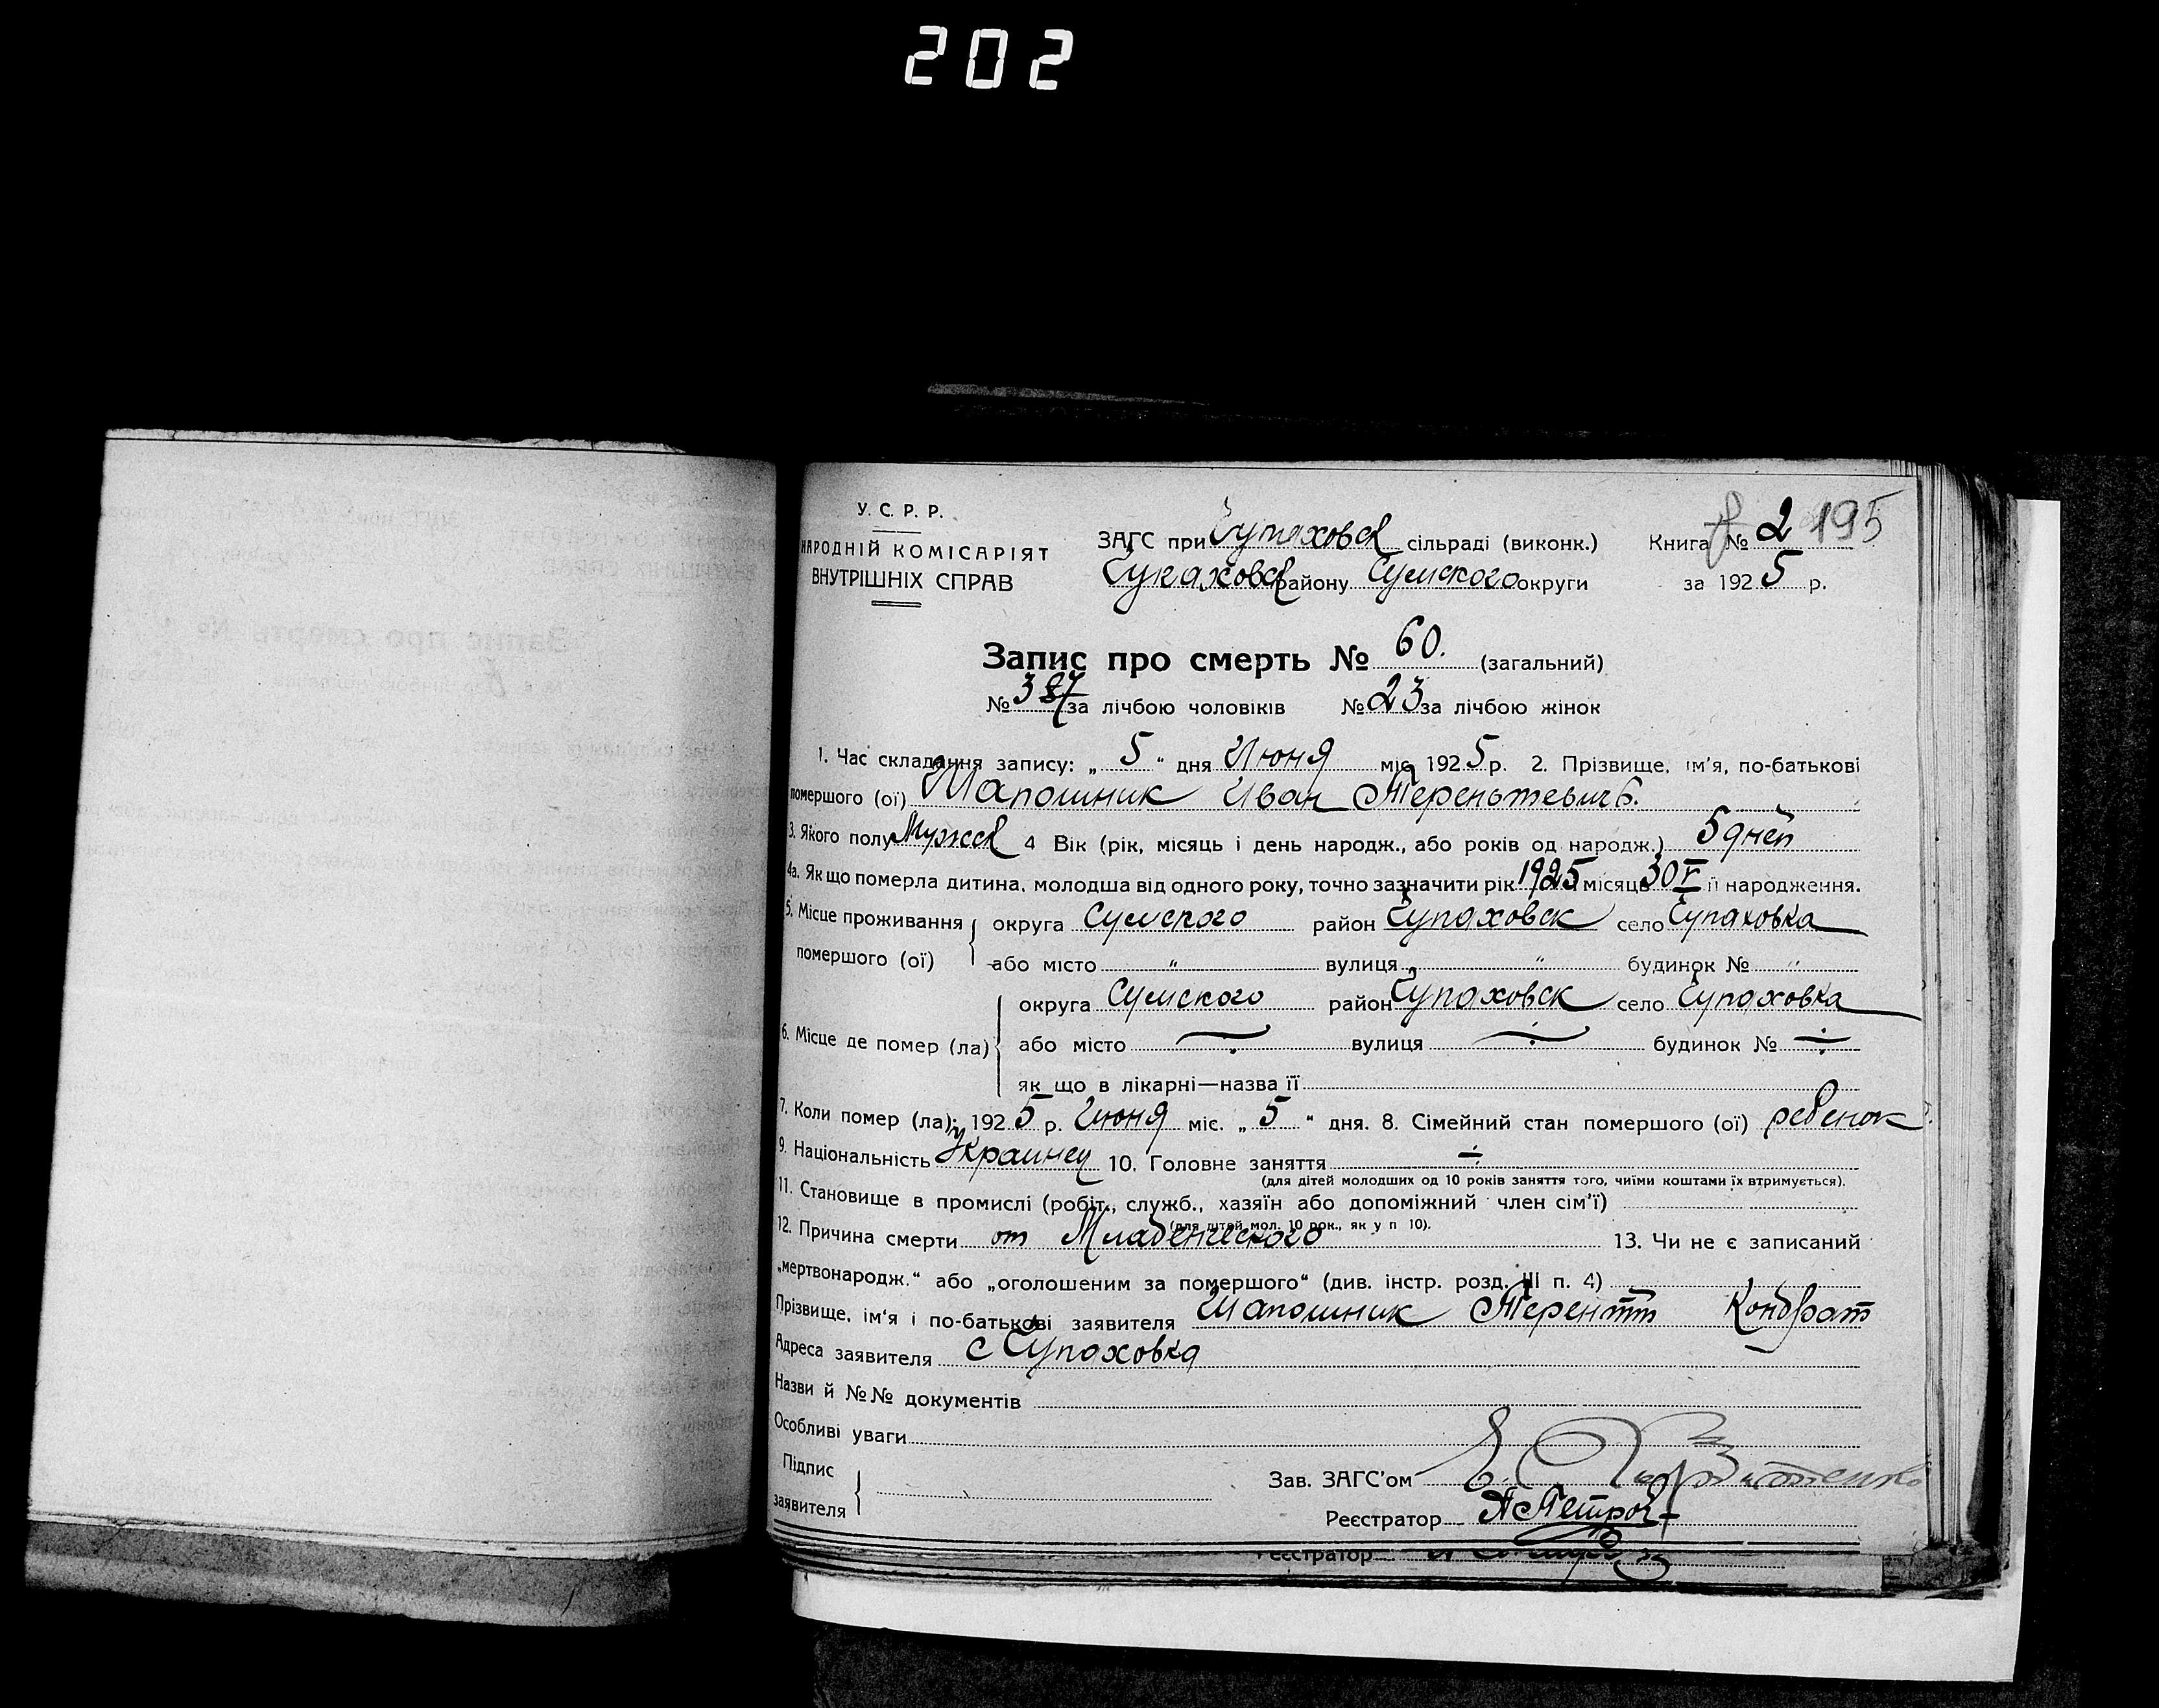 202
У. С. Р. Р.
НАРОДНІЙ КОМІСАРІЯТ
ВНУТРІШНІХ СПРАВ
ЗАГС при Чупаховск сільраді (виконк.)
Чупаховск району Сумского округи
Книга № 2 195
за 1925 р.
Запис про смерть № 60. (загальний)
№ 37 за лічбою чоловіків № 23 за лічбою жінок
1. Час складання запису: „ 5 " дня Июня міс. 1925 р. 2. Прізвище, ім'я, по-батькові
помершого (ої) Шапошник Иван Терентьевич
3. Якого полу Мужск 4 Вік (рік, місяць і день народж., або років од народж.) 5 дней
4а. Як що померла дитина, молодша від одного року, точно зазначити рік 1925 місяць 30 V її народження.
5. Місце проживання помершого (ої) округа Сумского район Чупаховск село Чупаховка
або місто " вулиця " будинок № "
6. Місце де помер (ла) округа Сумского район Чупаховск село Чупаховка
або місто ÷ вулиця ÷ будинок № ÷
як що в лікарні—назва її
7. Коли помер (ла): 1925 р. Июня міс. „ 5 " дня. 8. Сімейний стан помершого (ої) ребенок
9. Національність Украинец 10. Головне заняття ÷
(для дітей молодших од 10 років заняття того, чиїми коштами їх втримується).
11. Становище в промислі (робіт., служб., хазяїн або допоміжний член сім'ї)
(для дітей мол. 10 рок., як у п 10).
12. Причина смерти от Младенческого 13. Чи не є записаний
„мертвонародж." або „оголошеним за помершого" (див. інстр. розд. III п. 4)
Прізвище, ім'я і по-батькові заявителя Шапошник Терентий Кондрат
Адреса заявителя с Чупаховка
Назви й №№ документів
Особливі уваги
Підпис
заявителя
Зав. ЗАГС'ом
Реєстратор А Петров
Реєстратор